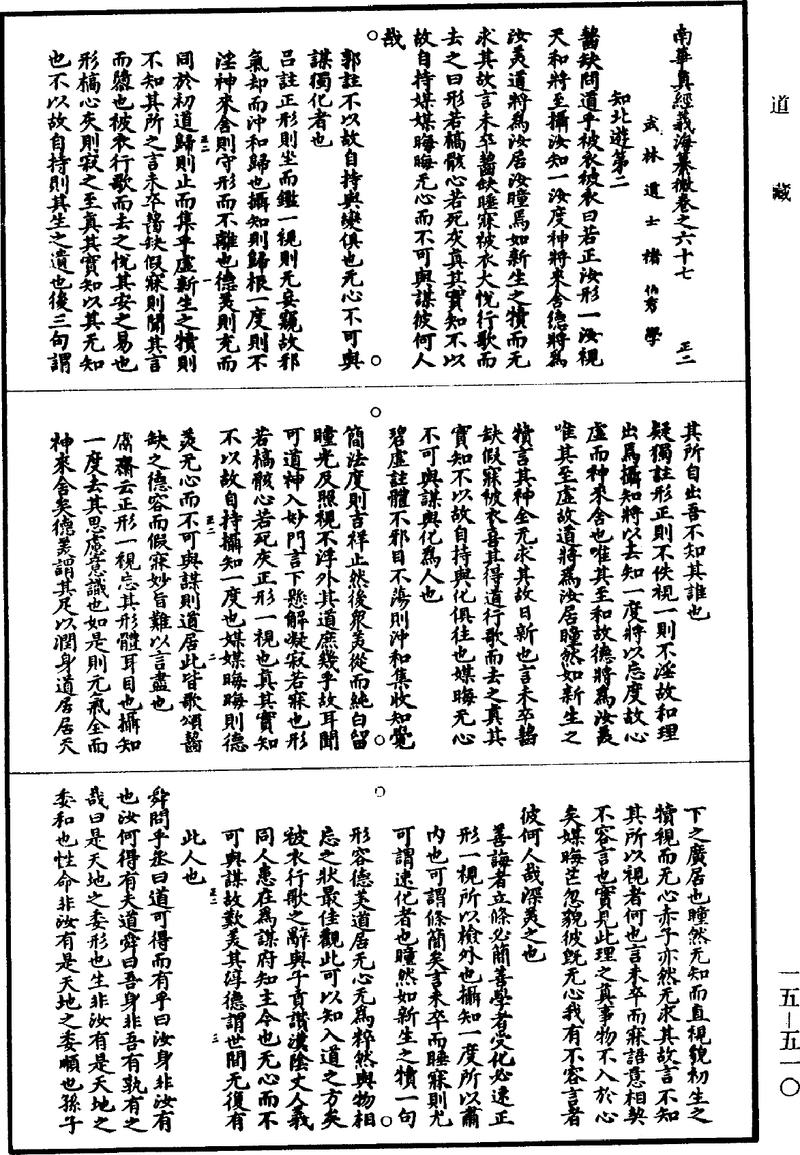 道藏
南華真經義海纂微卷之六十七 正二
武林道士褚伯秀學
知北遊第二
齧缺問道乎被衣被衣曰若正汝形一汝視
天和將至攝汝知一汝度神將來舍德將為
汝美道將為汝居汝瞳焉如新生之犢而无
求其故言未卒齧缺睡寐被衣大悅行歌而
去之曰形若槁骸心若死灰真其實知不以
故自持媒媒晦晦无心而不可與謀彼何人
哉
郭註不以故自持與變俱也无心不可與
謀獨化者也
呂註正形則坐而鑑一視則无妄窺故邪
氣却而沖和歸也攝知則歸根一度則不
淫神來舍則守形而不離也德美則充而
同於初道歸則止而集乎虛新生之犢則
不知其所之言未卒齧缺假寐則聞其言
而醫也被衣行歌而去之悅其安之易也
形槁心灰則寂之至真其實知以其无知
也不以故自持則其生之遺也後三句謂
其所自出吾不知其誰也
疑獨註形正則不佚視一則不淫故和理
出焉攝知將以去知一度將以忘度故心
虛而神來舍也唯其至和故德將為汝美
唯其至虛故道將為汝居瞳然如新生之
犢言其神全无求其故日新也言未卒齧
缺假寐被衣喜其得道行歌而去之真其
實知不以故自持與化俱往也媒晦无心
不可與謀與化為人也
碧虛註體不邪目不蕩則沖和集收知覺
簡法度則吉祥止然後衆美從而純白留
瞳光及照視不浮外其道庶幾乎故耳聞
可道神入妙門言下懸解凝寂若寐也形
若槁骸心若死灰正形一視也真其實知
不以故自持攝知一度也媒媒晦晦則德
美无心而不可與謀則道居此皆歌頌齧
缺之德容而假寐妙旨難以言盡也
鬳齋云正形一視忘其形體耳目也攝知
一度去其思慮意識也如是則元氣全而
神來舍矣德美謂其足以潤身道居居天
下之廣居也瞳然无知而直視貌初生之
犢視而无心赤子亦然无求其故言不知
其所以視者何也言未卒而寐語意相契
不容言也實見此理之真事物不入於心
矣媒晦芒忽貌彼既无心我有不容言者
彼何人哉深美之也
善誨者立條必簡善學者受化必速正
形一視所以檢外也攝知一度所以肅
內也可謂條簡矣言未卒而睡寐則尤
可謂速化者也瞳然如新生之犢一句
形容德美道居无心无為粹然與物相
忘之狀最佳觀此可以知入道之方矣
被衣行歌之辭與子貢讚漢陰丈人義
同人患在為謀府知主今也无心而不
可與謀故歎美其淳德謂世間无復有
此人也
舜問乎丞曰道可得而有乎曰汝身非汝有
也汝何得有夫道舜曰吾身非吾有孰有之
哉曰是天地之委形也生非汝有是天地之
委和也性命非汝有是天地之委順也孫子
一五—五一〇